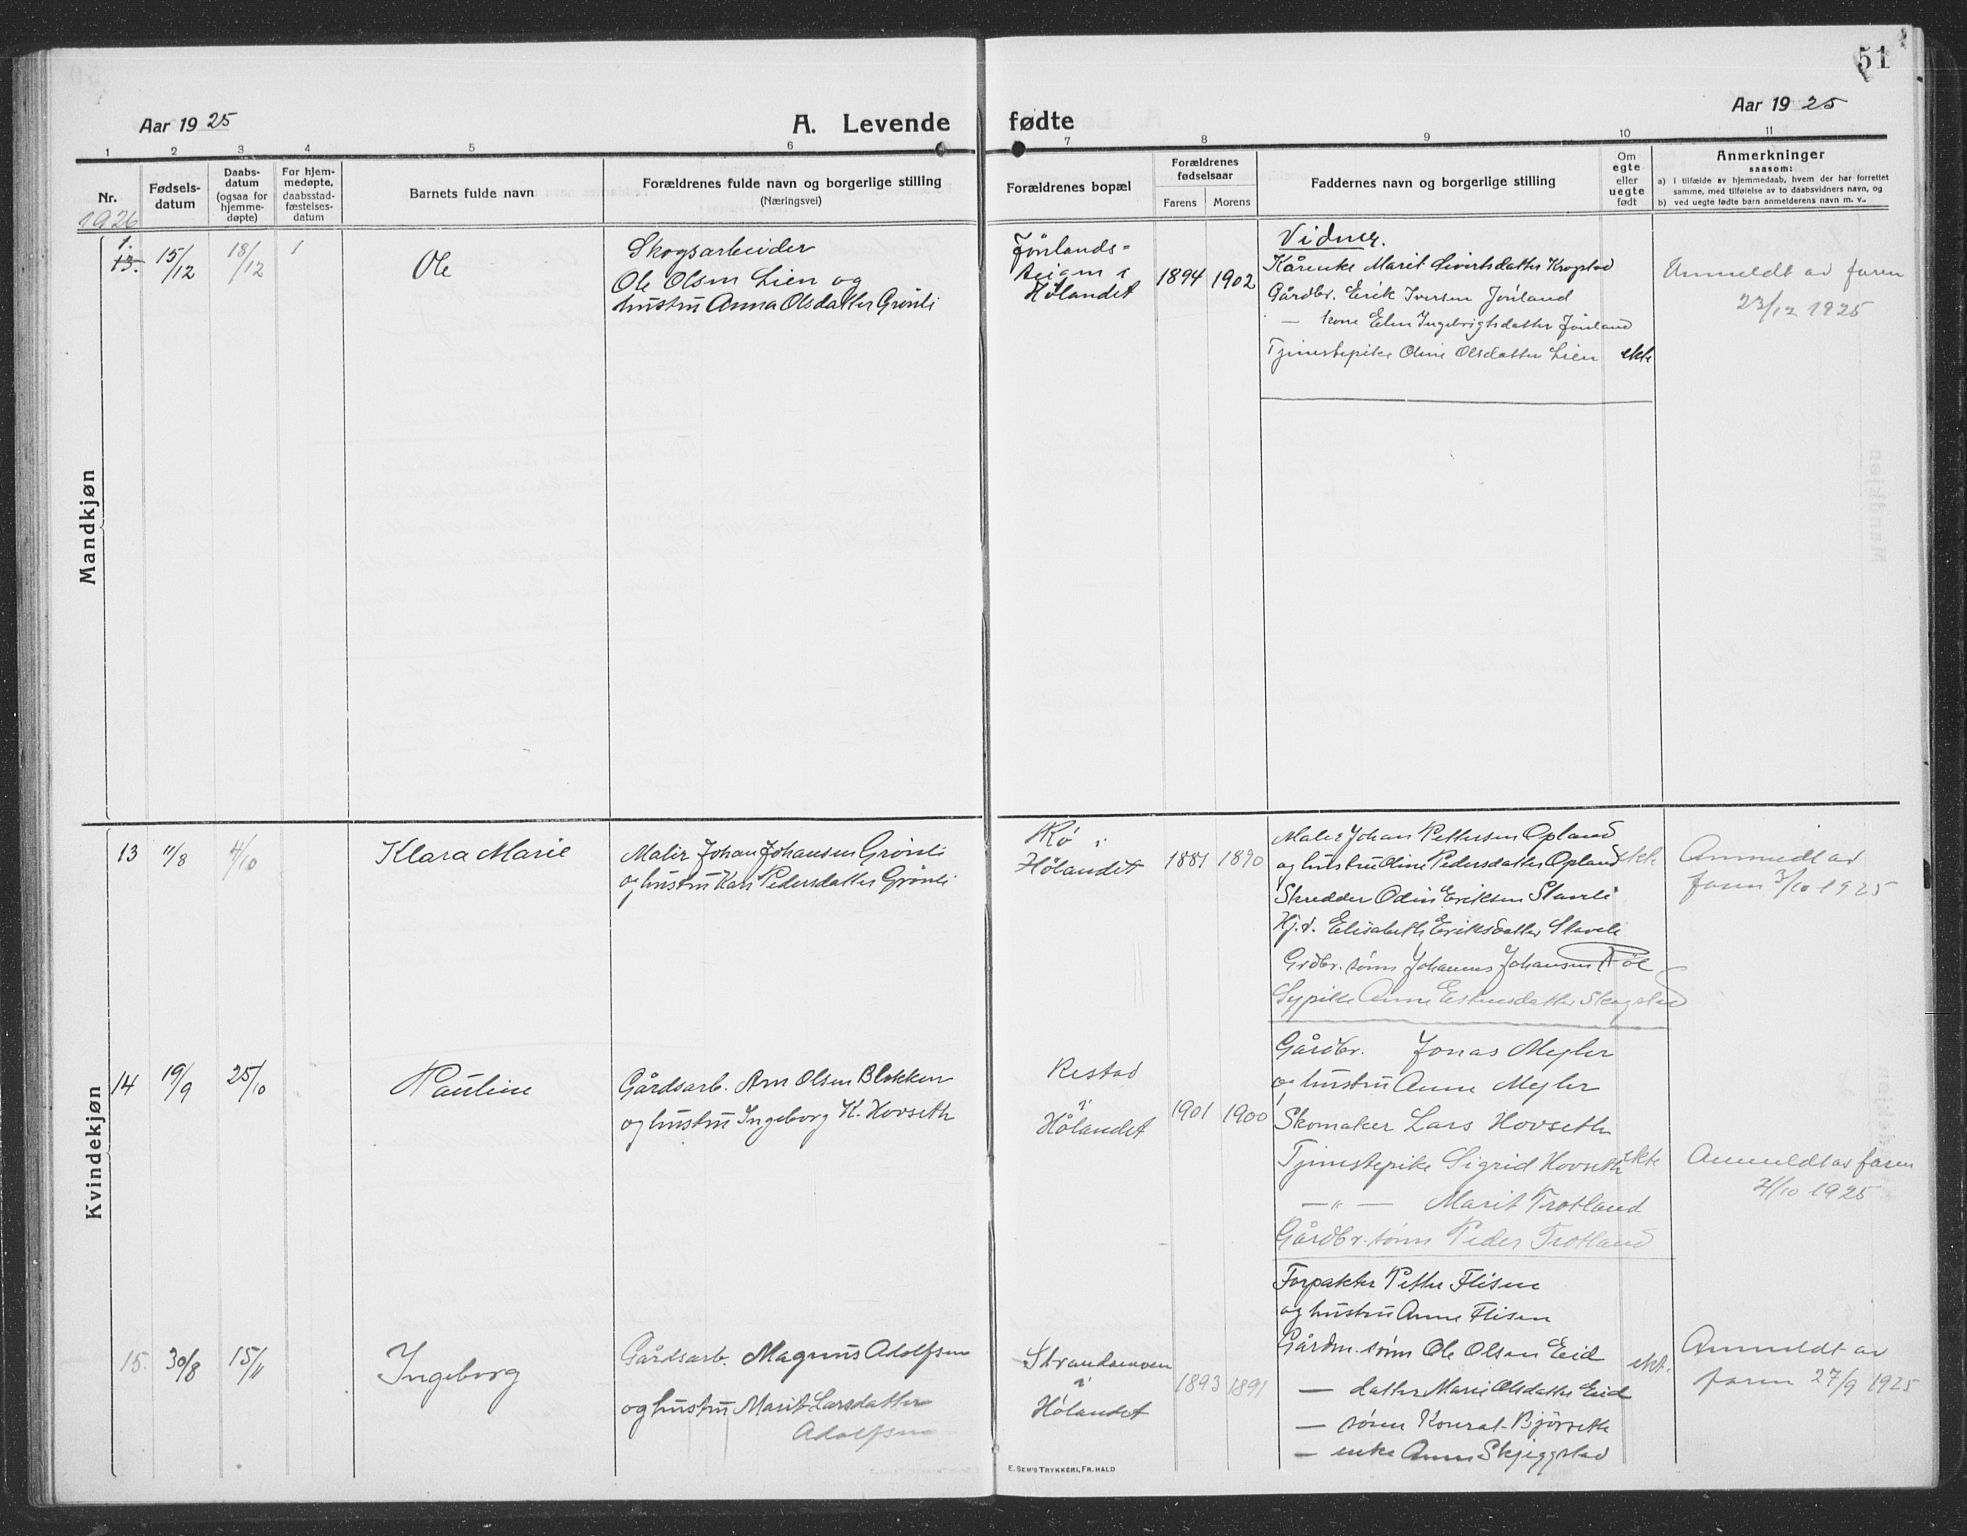 51
Aar 1925
A. Levende fødte
Aar 1925
1 2 3 4 5 6 7 8 9 10 11
Nr.
Fødsels-
datum
Daabs-
datum
(ogsaa for
hjemme-
døpte)
For hjem-
medøpte,
daabsstad-
fæstelses-
datum
Barnets fulde navn
Forældrenes fulde navn og borgerlige stilling
(Næringsvei)
Forældrenes bopæl
Forældrenes
fødselsaar
Farens Morens
Faddernes navn og borgerlige stilling
Om
egte
eller
uegte
født
Anmerkninger
saasom:
a) i tilfælde av hjemmedaab, hvem der har forrettet
samme, med tilføielse av to daabsvidners navn, og
b) ved uegte fødte barn anmelderens navn m. v.
1926
Mandkjøn
1.
13.
15/12
18/12
1
Ole
Skogsarbeider
Ole Olsen Lien og
hustru Anna Olsdatter Grønli
Hølandet
1894 1902
Vidner.
Marit Sivertsdatter Krogstad
Gårdbr. Erik Iversen Jønland
— kone Elen Ingebrigtsdatter Jønland
Tjenestepike Oline Olsdatter Lien
ekte
Anmeldt av faren
23/12 1925
Kvindekjøn
13
11/8
4/10
Klara Marie
Maler Johan Johansen Grønli
og hustru Kari Pedersdatter Grønli
Rø i
Hølandet
1881 1890
Maler Johan Pettersen Opland
og hustru Oline Pedersdatter Opland
Skredder Odin Eriksen Stavli
Hj.d. Elisabeth Eriksdatter Stavli
Grdbr. sønn Johannes Johansen
Sypike Anne Estensdatter Skogstad
ekte
Anmeldt av
faren 3/10 1925
14
19/9
25/10
Pauline
Gårdsarb. Arn Olsen Blokken
og hustru Ingeborg K. Hovseth
Restad
i
Hølandet
1901 1900
Gårdbr. Jonas Megler
og hustru Anne Megler
Skomaker Lars Hovseth
Tjenestepike Sigrid Hovseth
—"— Marit Trotland
Gårdbr. sønn Peder Trotland
ekte
Anmeldt av faren
2/10 1925
15.
30/8
15/11
Ingeborg
Gårdsarb. Magnus Adolfsen
og hustru Marit Larsdatter
Adolfsen
Strandamoen
i
Hølandet
1893 1891
Forpakter Petter Flisen
og hustru Anne Flisen
Gårdm. sønn Ole Olsen Eid
— datter Marie Olsdatter Eid
— sønn Konrad Bjørseth
— enke Anne Skjeggstad
ekte
Anmeldt av
faren 27/9 1925
E. SEM'S TRYKKERI, FR. HALD